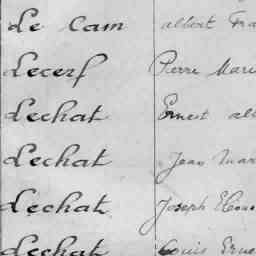 Le Cam albert Fra
Lecerf Pierre Mari
Lechat Ernest alb
Lechat Jean Mar
Lechat Joseph
Lechat Louis Erne